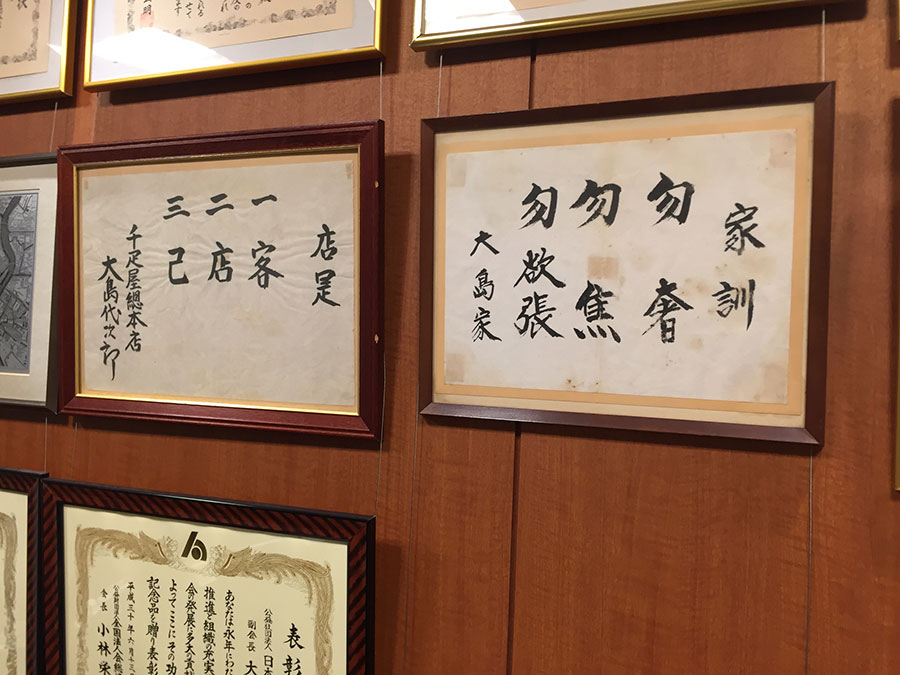 家訓
勿奢
勿焦
勿欲張
大島家
店是
一客
二店
三己
千疋屋總本店
大島代次郎
表彰
公益社団法人 日本
副会長 大
あなたは永年にわた
推進と組織の充実
会の発展に多大の貢献
よってここにその功
記念品を贈り表彰
平成三十年六月十三
公益財団法人全国法人会総
会長 小林栄